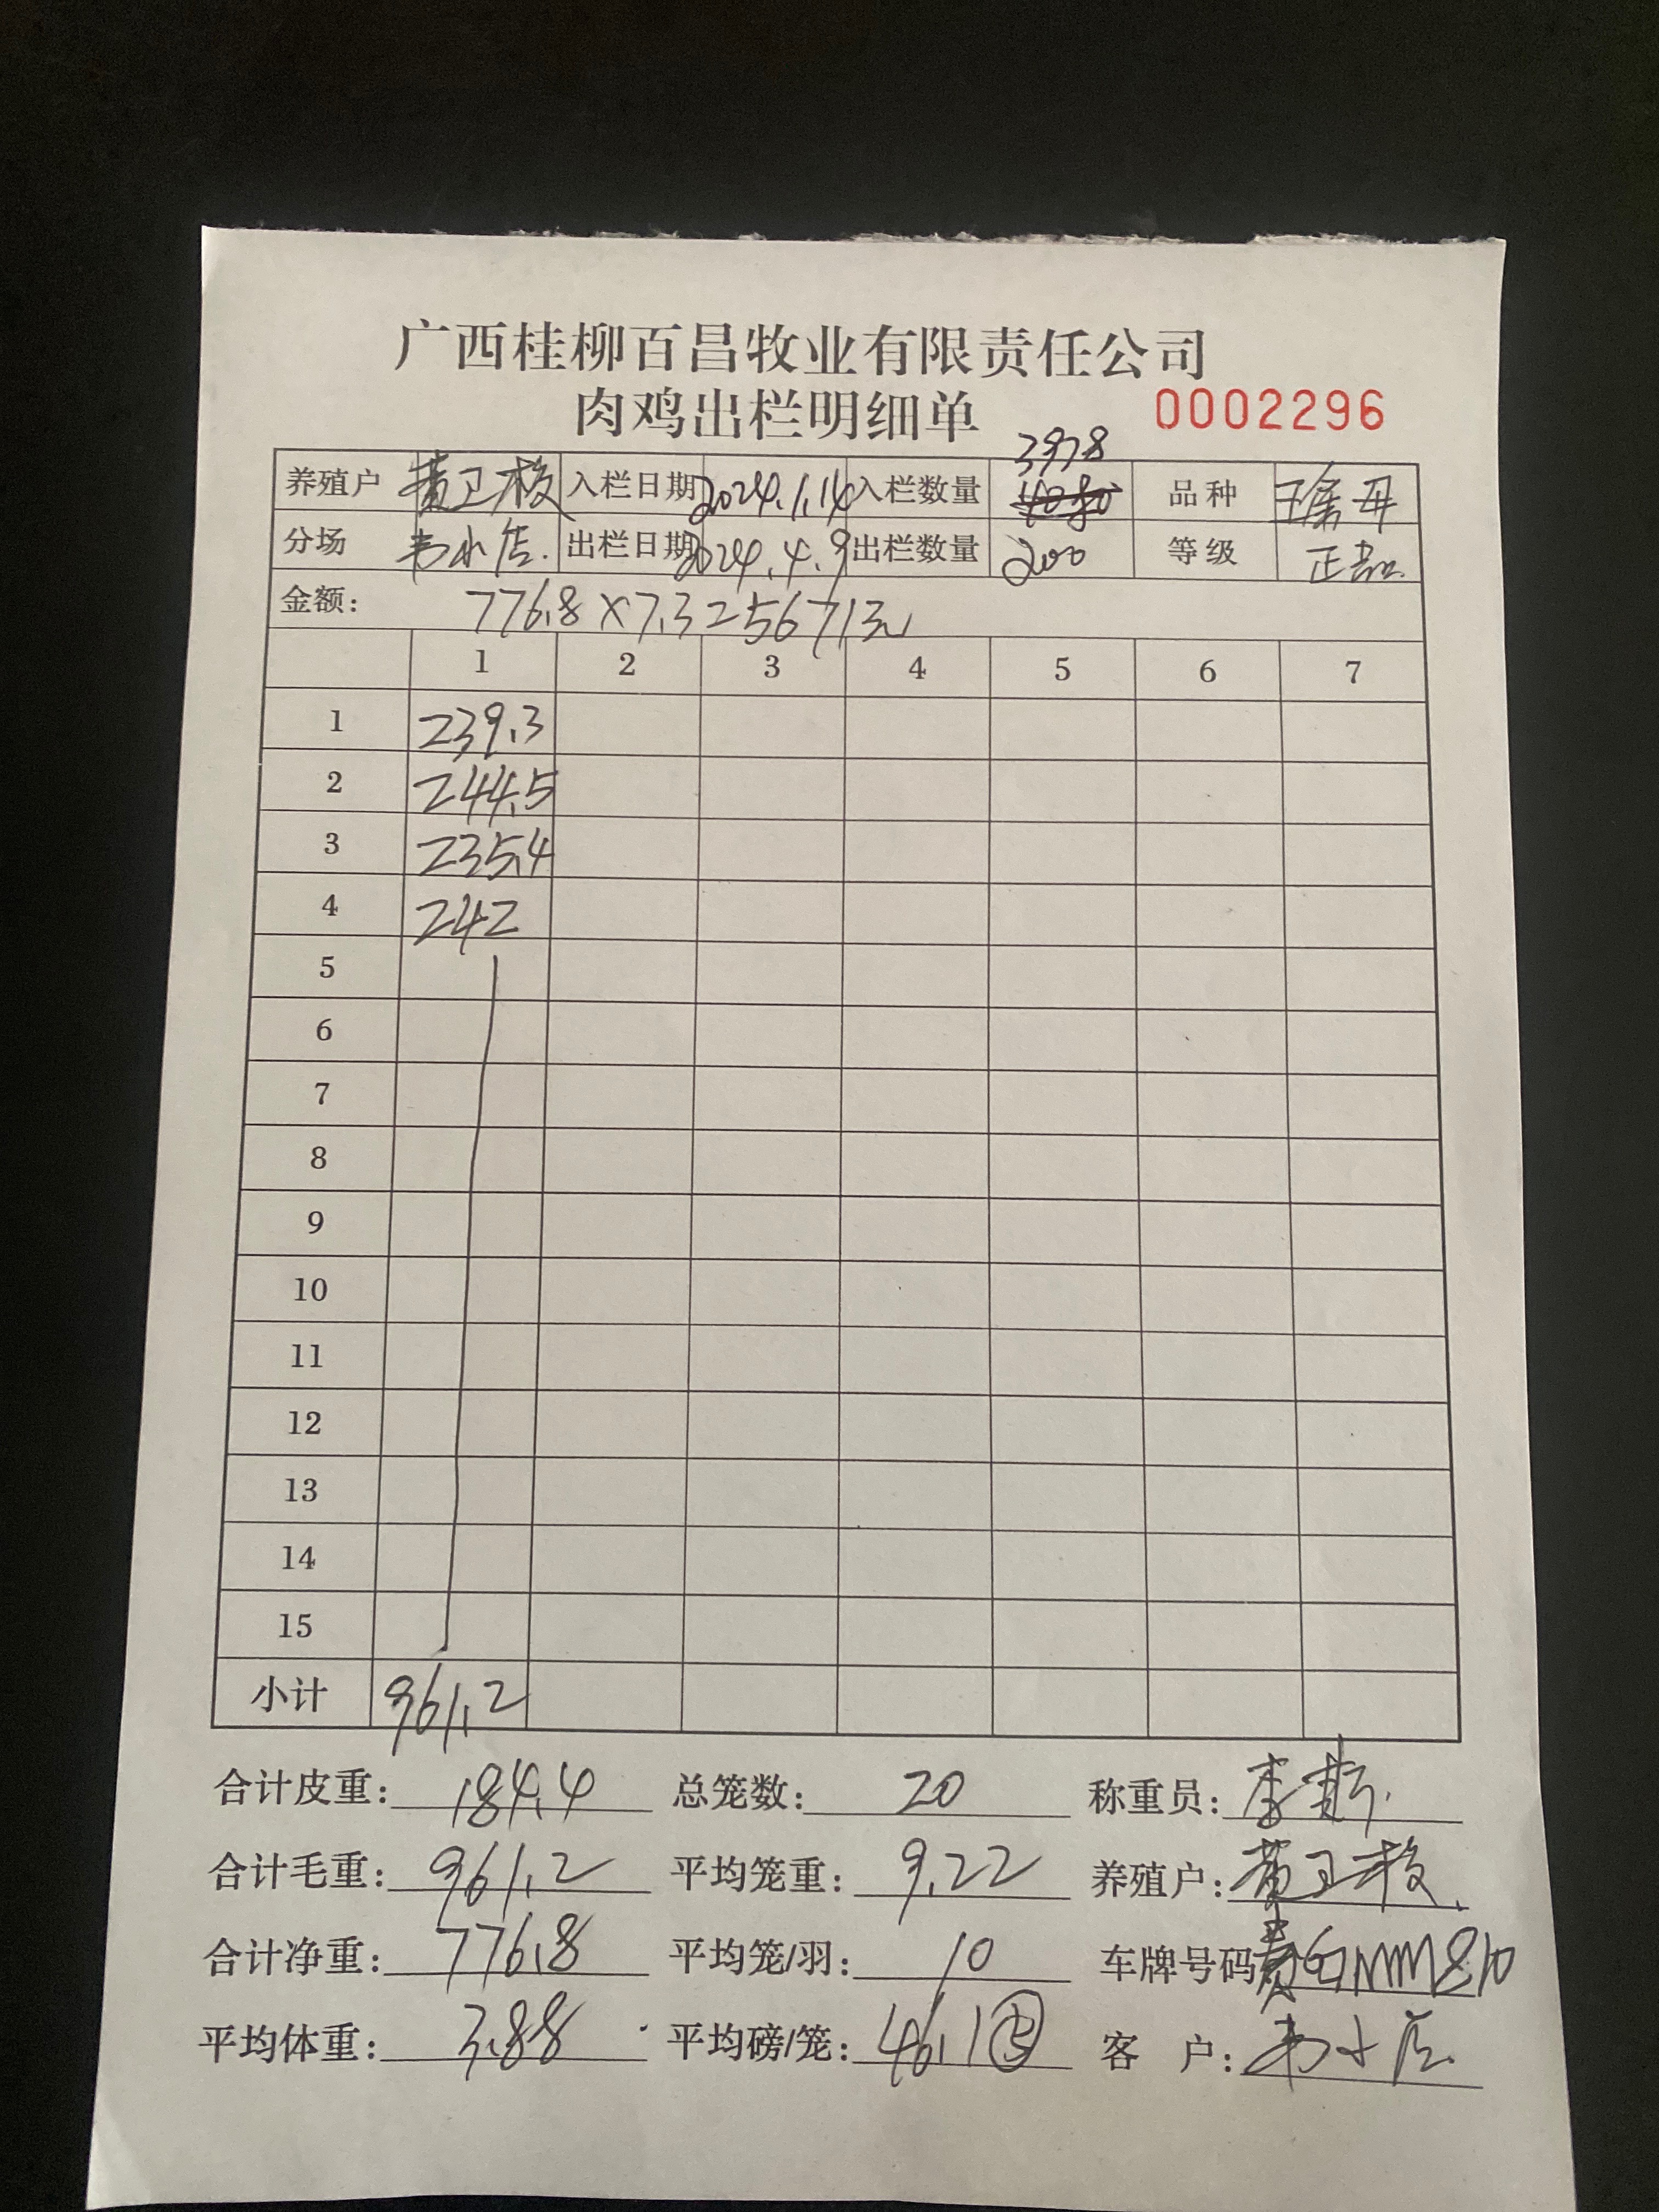 广西桂柳百昌牧业有限责任公司
肉鸡出栏明细单 0002296
3978
养殖户 黄卫枝 入栏日期 2024.1.14 入栏数量 4080 品种 瑶母
分场 韦小店. 出栏日期 2024.4.9 出栏数量 200 等级 正品.
金额: 776.8×7.3=5671元
1 2 3 4 5 6 7
1 239.3
2 244.5
3 235.4
4 242
5
6
7
8
9
10
11
12
13
14
15
小计 961.2
合计皮重: 184.4 总笼数: 20 称重员: 李
合计毛重: 961.2 平均笼重: 9.22 养殖户: 黄卫枝
合计净重: 776.8 平均笼/羽: 10 车牌号码: MM810
平均体重: 3.88 平均磅/笼: 46.1 客 户: 韦小店